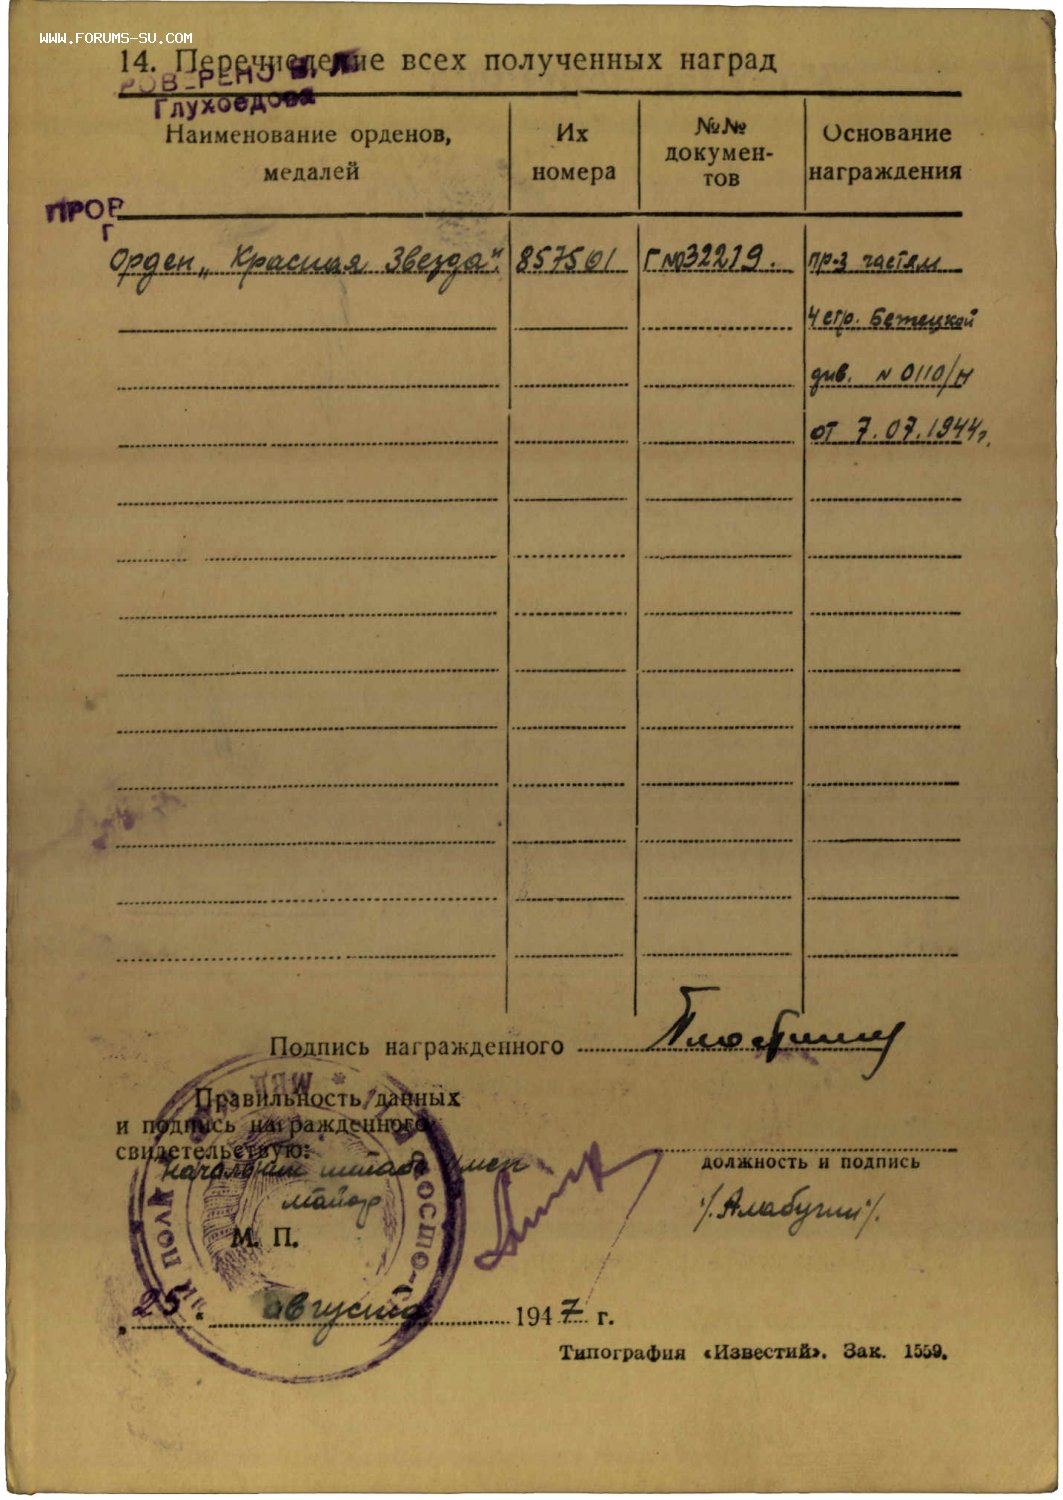 WWW.FORUMS-SU.COM
14. Перечисление всех полученных наград
Глухоедова
Наименование орденов, медалей
Их номера
№№ документов
Основание награждения
ПРОВ
Г
Орден „Красная Звезда“
857501
Г №032219.
пр-з частям
4 стр. Бежецкой
див. N 0110/н
от 7.07.1944г.
Подпись награжденного
Правильность данных
и подпись награжденного
свидетельствую:
начальник штаба
майор
должность и подпись
/Алабугин/.
М. П.
„25“ августа 1947 г.
Типография «Известий». Зак. 1559.